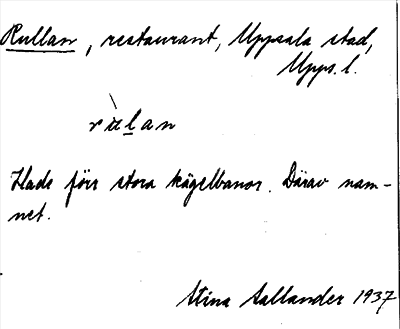 Rullan, restaurant, Uppsala stad,
Upps. l.
rùlan
Hade förr stora kägelbanor. Därav nam-
net.
Stina Sallander 1937